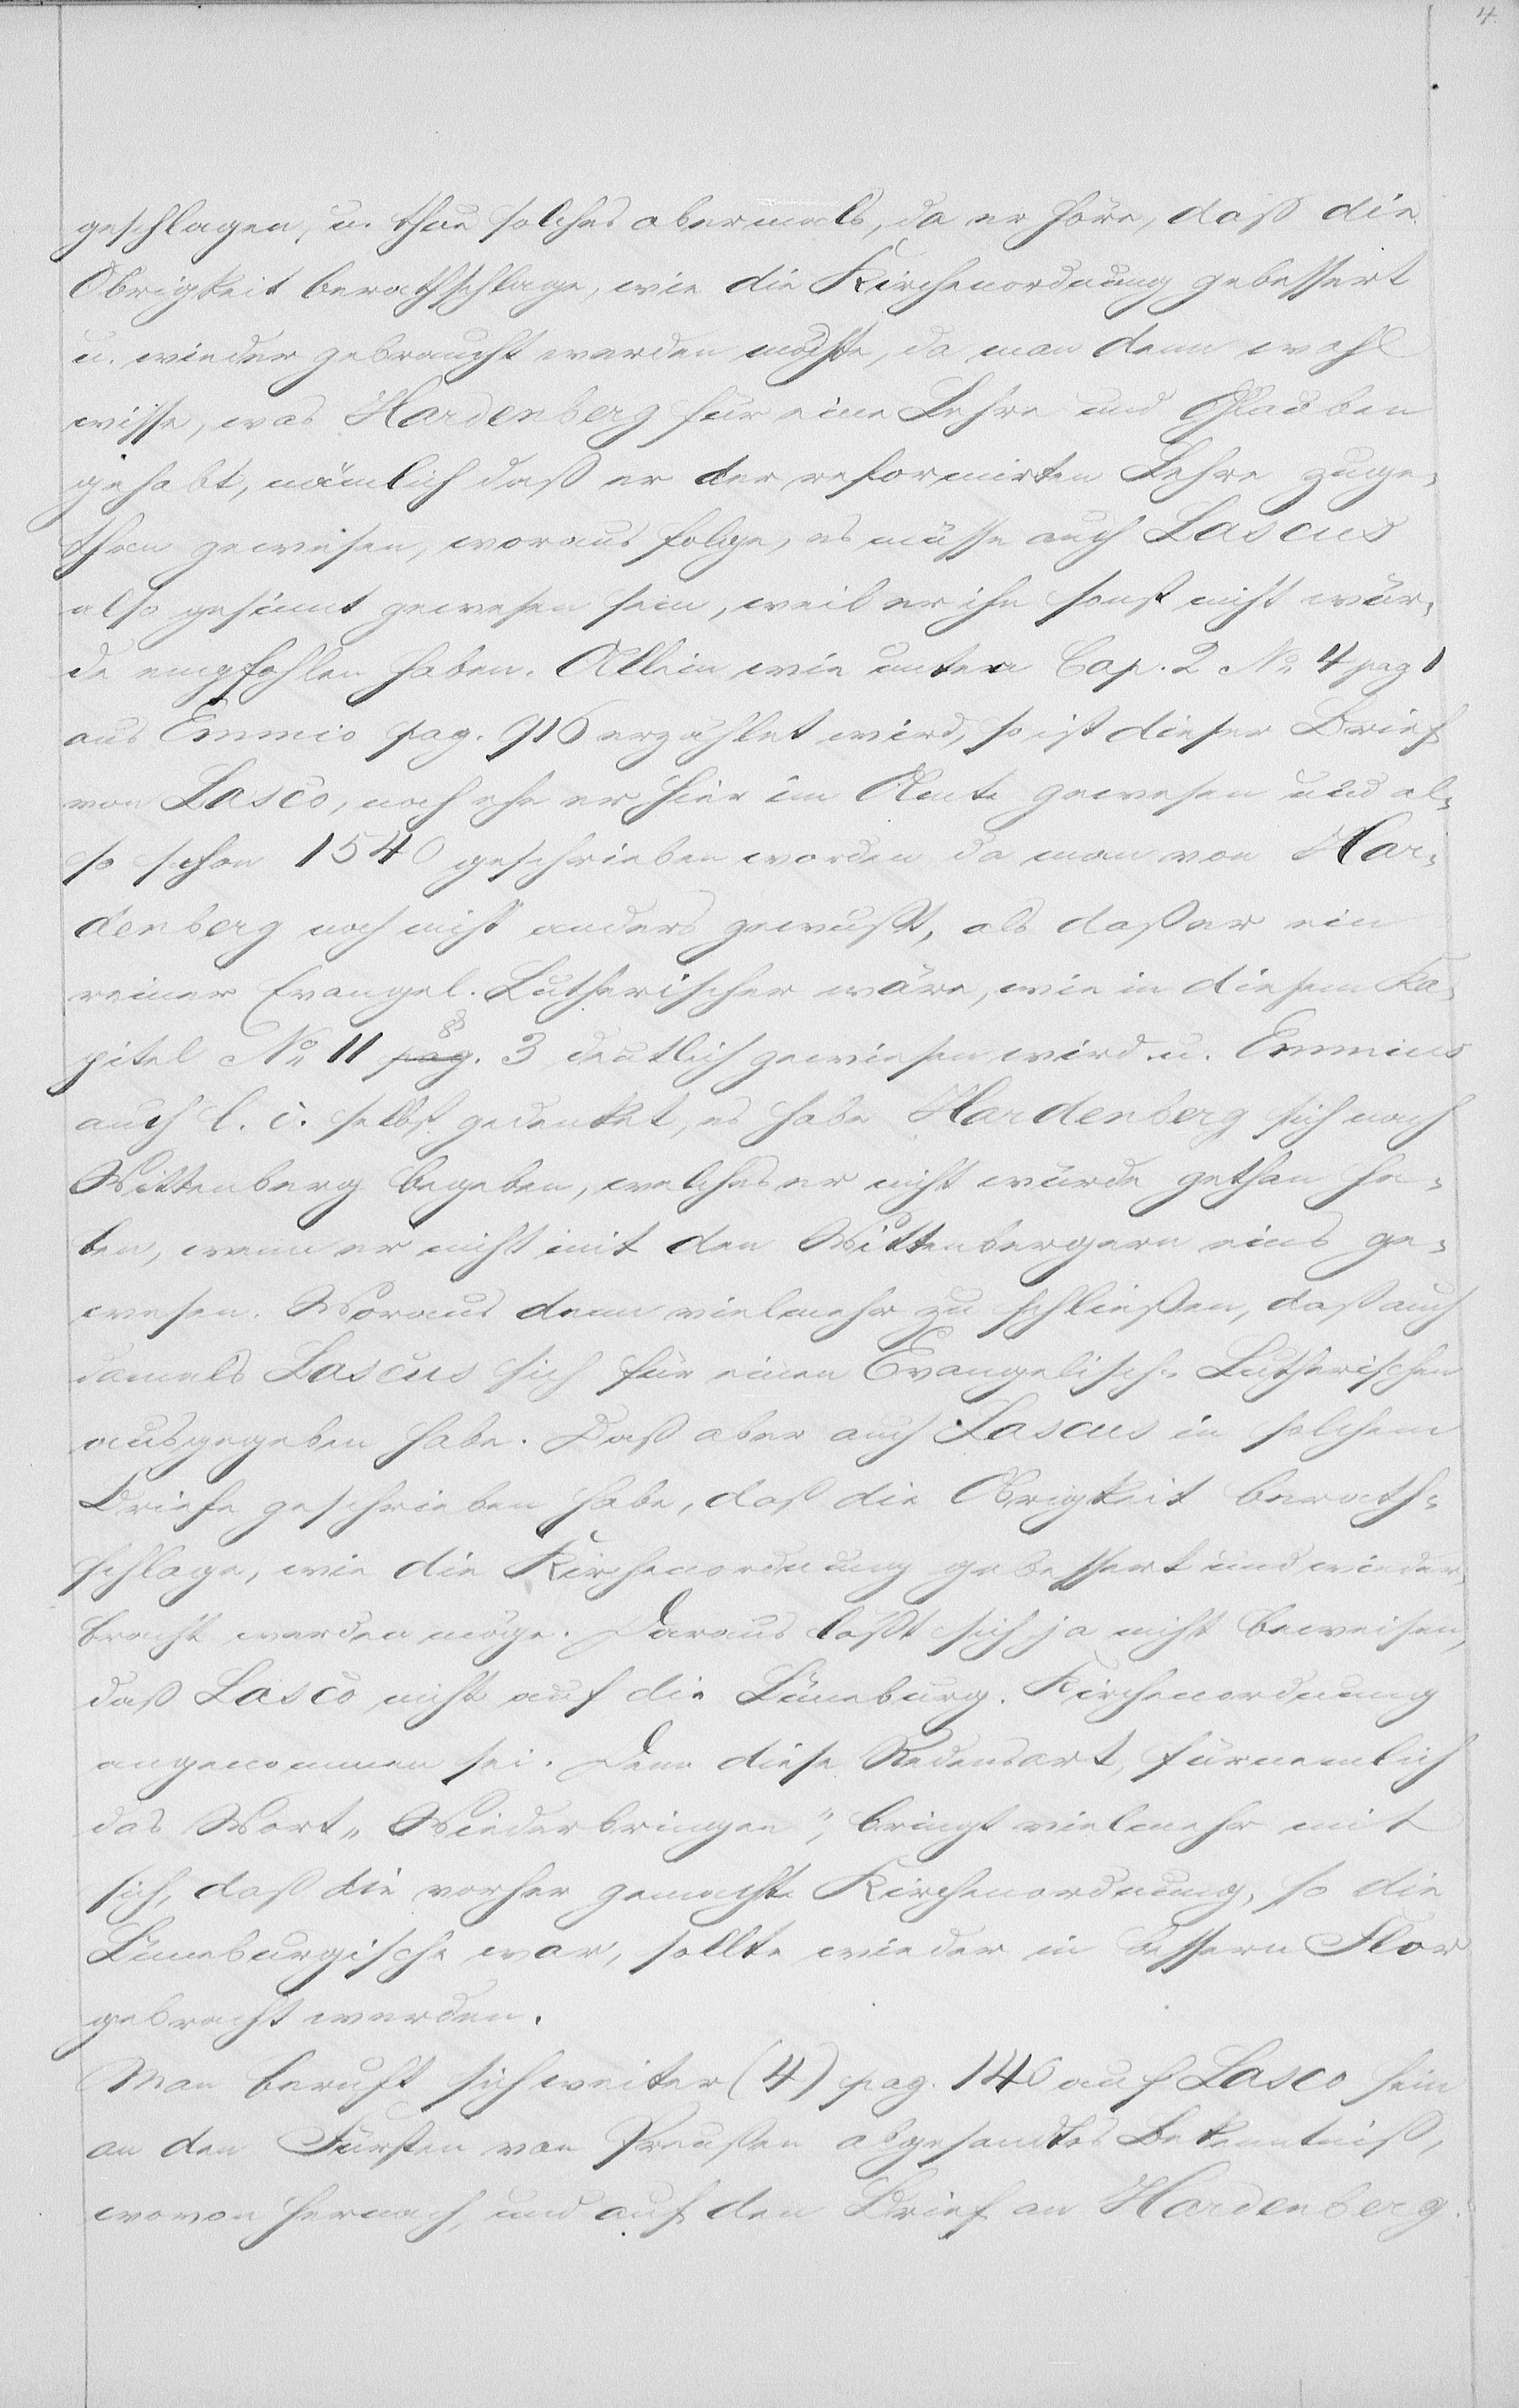 4.
geschlagen, u. thue solches abermals, da er höre, daß die
Obrigkeit berathschlage, wie die Kirchenordnung gebessert
u. wieder gebraucht werden möchte, da man denn wohl
wisse, was Hardenberg für eine Lehre und Glauben
gehabt, nämlich daß er der reformirten Lehre zuge-
than gewesen, woraus folge, es müsse auch Lascus
also gesinnt gewesen sein, weil er ihn sonst nicht wür-
de empfohlen haben. Allein wie unten Cap. 2 No. 4 pag 1
aus Emmio pag. 916 erzählet wird, so ist dieser Brief
von Lasco, noch ehe er hier im Amte gewesen und al-
so schon 1540 geschrieben worden da man von Har-
denberg noch nicht anders gewußt, als daß er ein
reiner Evangel. Lutherischer wäre, wie in diesem Ka-
pitel No. 11 pag. § 3 deutlich gewiesen wird u. Emmius
auch l. c. selbst gedenket, es habe Hardenberg sich nach
Wittenberg begeben, welches er nicht würde gethan ha-
ben, wenn er nicht mit den Wittenbergern eins ge-
wesen. Woraus denn vielmehr zu schließen, daß auch
damals Lascus sich für einen Evangelisch-Lutherischen
ausgegeben habe. Daß aber auch Lascus in solchem
Briefe geschrieben habe, daß die Obrigkeit berath-
schlage, wie die Kirchenordnung gebessert und wieder-
bracht werden möge. Daraus läßt sich ja nicht beweisen,
daß Lasco nicht auf die Lüneburg. Kirchenordnung
angenommen sei. Denn diese Redensart, fürnemlich
das Wort „Wiederbringen", bringt vielmehr mit
sich, daß die vorher gemachte Kirchenordnung, so die
Lüneburgische war, sollte wieder in bessern Flor
gebracht werden.
Man beruft sich weiter (4) pag. 146 auf Lasco sein
an den Fürsten von Preußen abgesandtes Bekenntniß,
wovon hernach, und auf den Brief an Hardenberg.